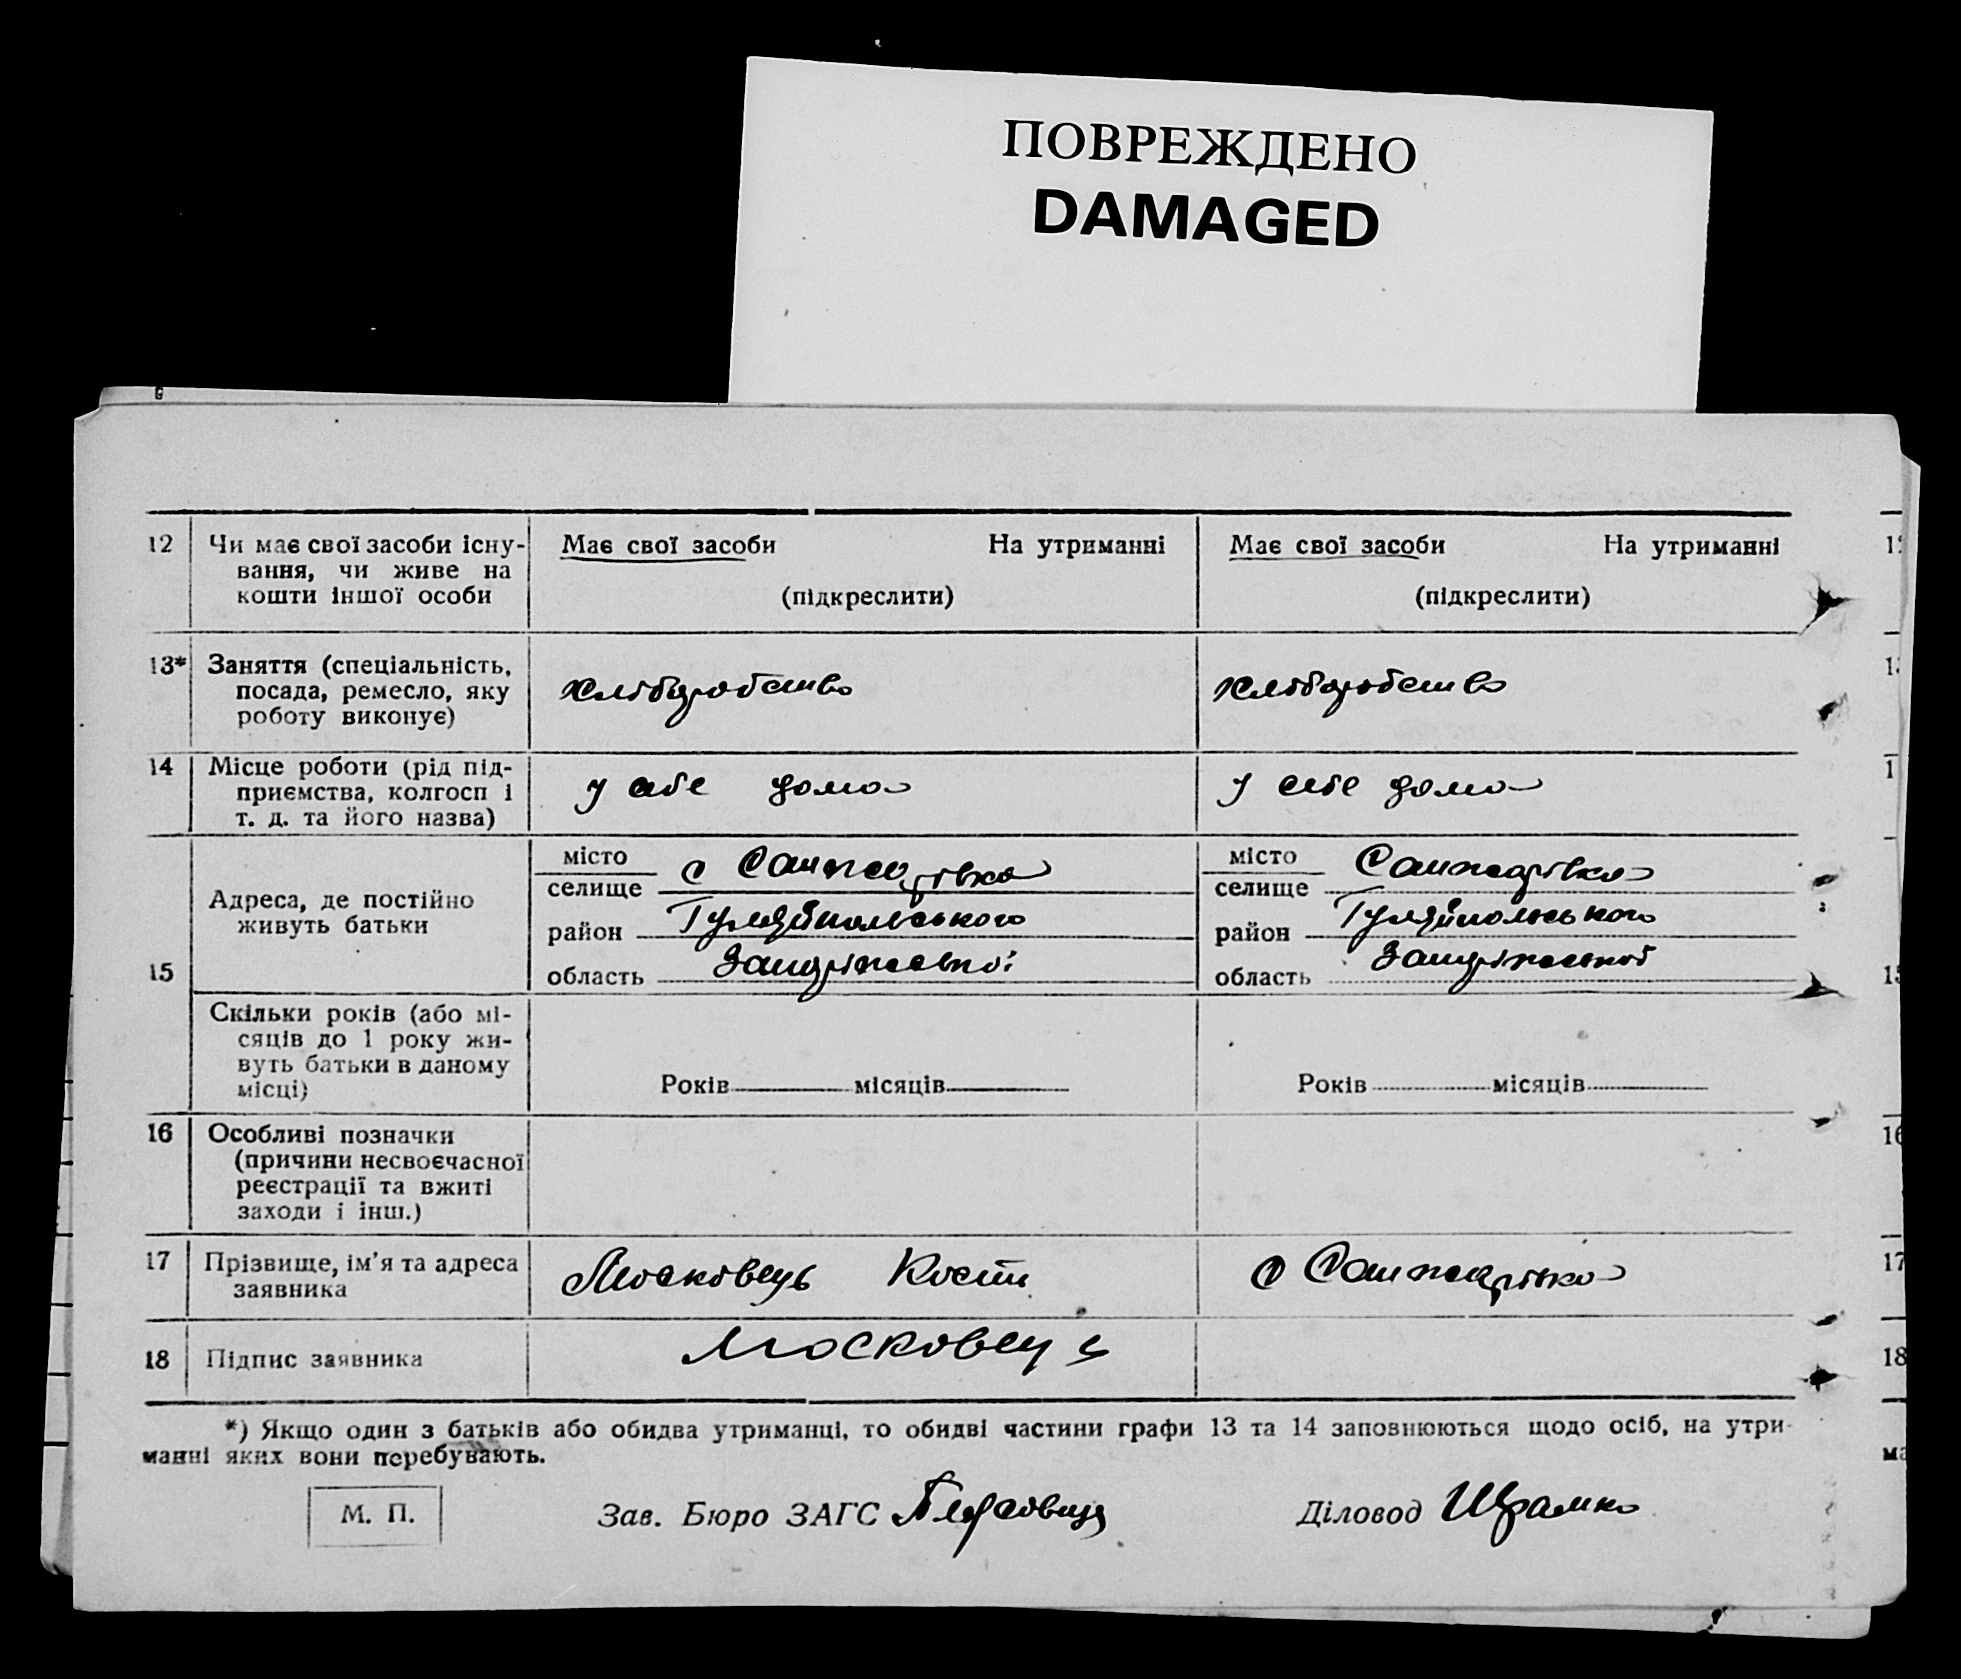 ПОВРЕЖДЕНО
DAMAGED
12 Чи має свої засоби існу-
вання, чи живе на
кошти іншої особи
Має свої засоби На утриманні
(підкреслити)
Має свої засоби На утриманні
(підкреслити)
13* Заняття (спеціальність,
посада, ремесло, яку
роботу виконує)
хліборобство
хліборобство
14 Місце роботи (рід під-
приємства, колгосп і
т. д. та його назва)
у себе дома
у себе дома
15
Адреса, де постійно
живуть батьки
місто
селище с Санжарівка
район Гуляйпольського
область Запоріжської
місто
селище Санжарівка
район Гуляйпольського
область Запоріжської
Скільки років (або мі-
сяців до 1 року жи-
вуть батьки в даному
місці)
Років місяців
Років місяців
16 Особливі позначки
(причини несвоєчасної
реєстрації та вжиті
заходи і інш.)
17 Прізвище, ім'я та адреса
заявника
Московець Кость
с Санжарівка
18 Підпис заявника
Московец
*) Якщо один з батьків або обидва утриманці, то обидві частини графи 13 та 14 заповнюються щодо осіб, на утри-
манні яких вони перебувають.
М. П.
Зав. Бюро ЗАГС
Діловод Шрамко